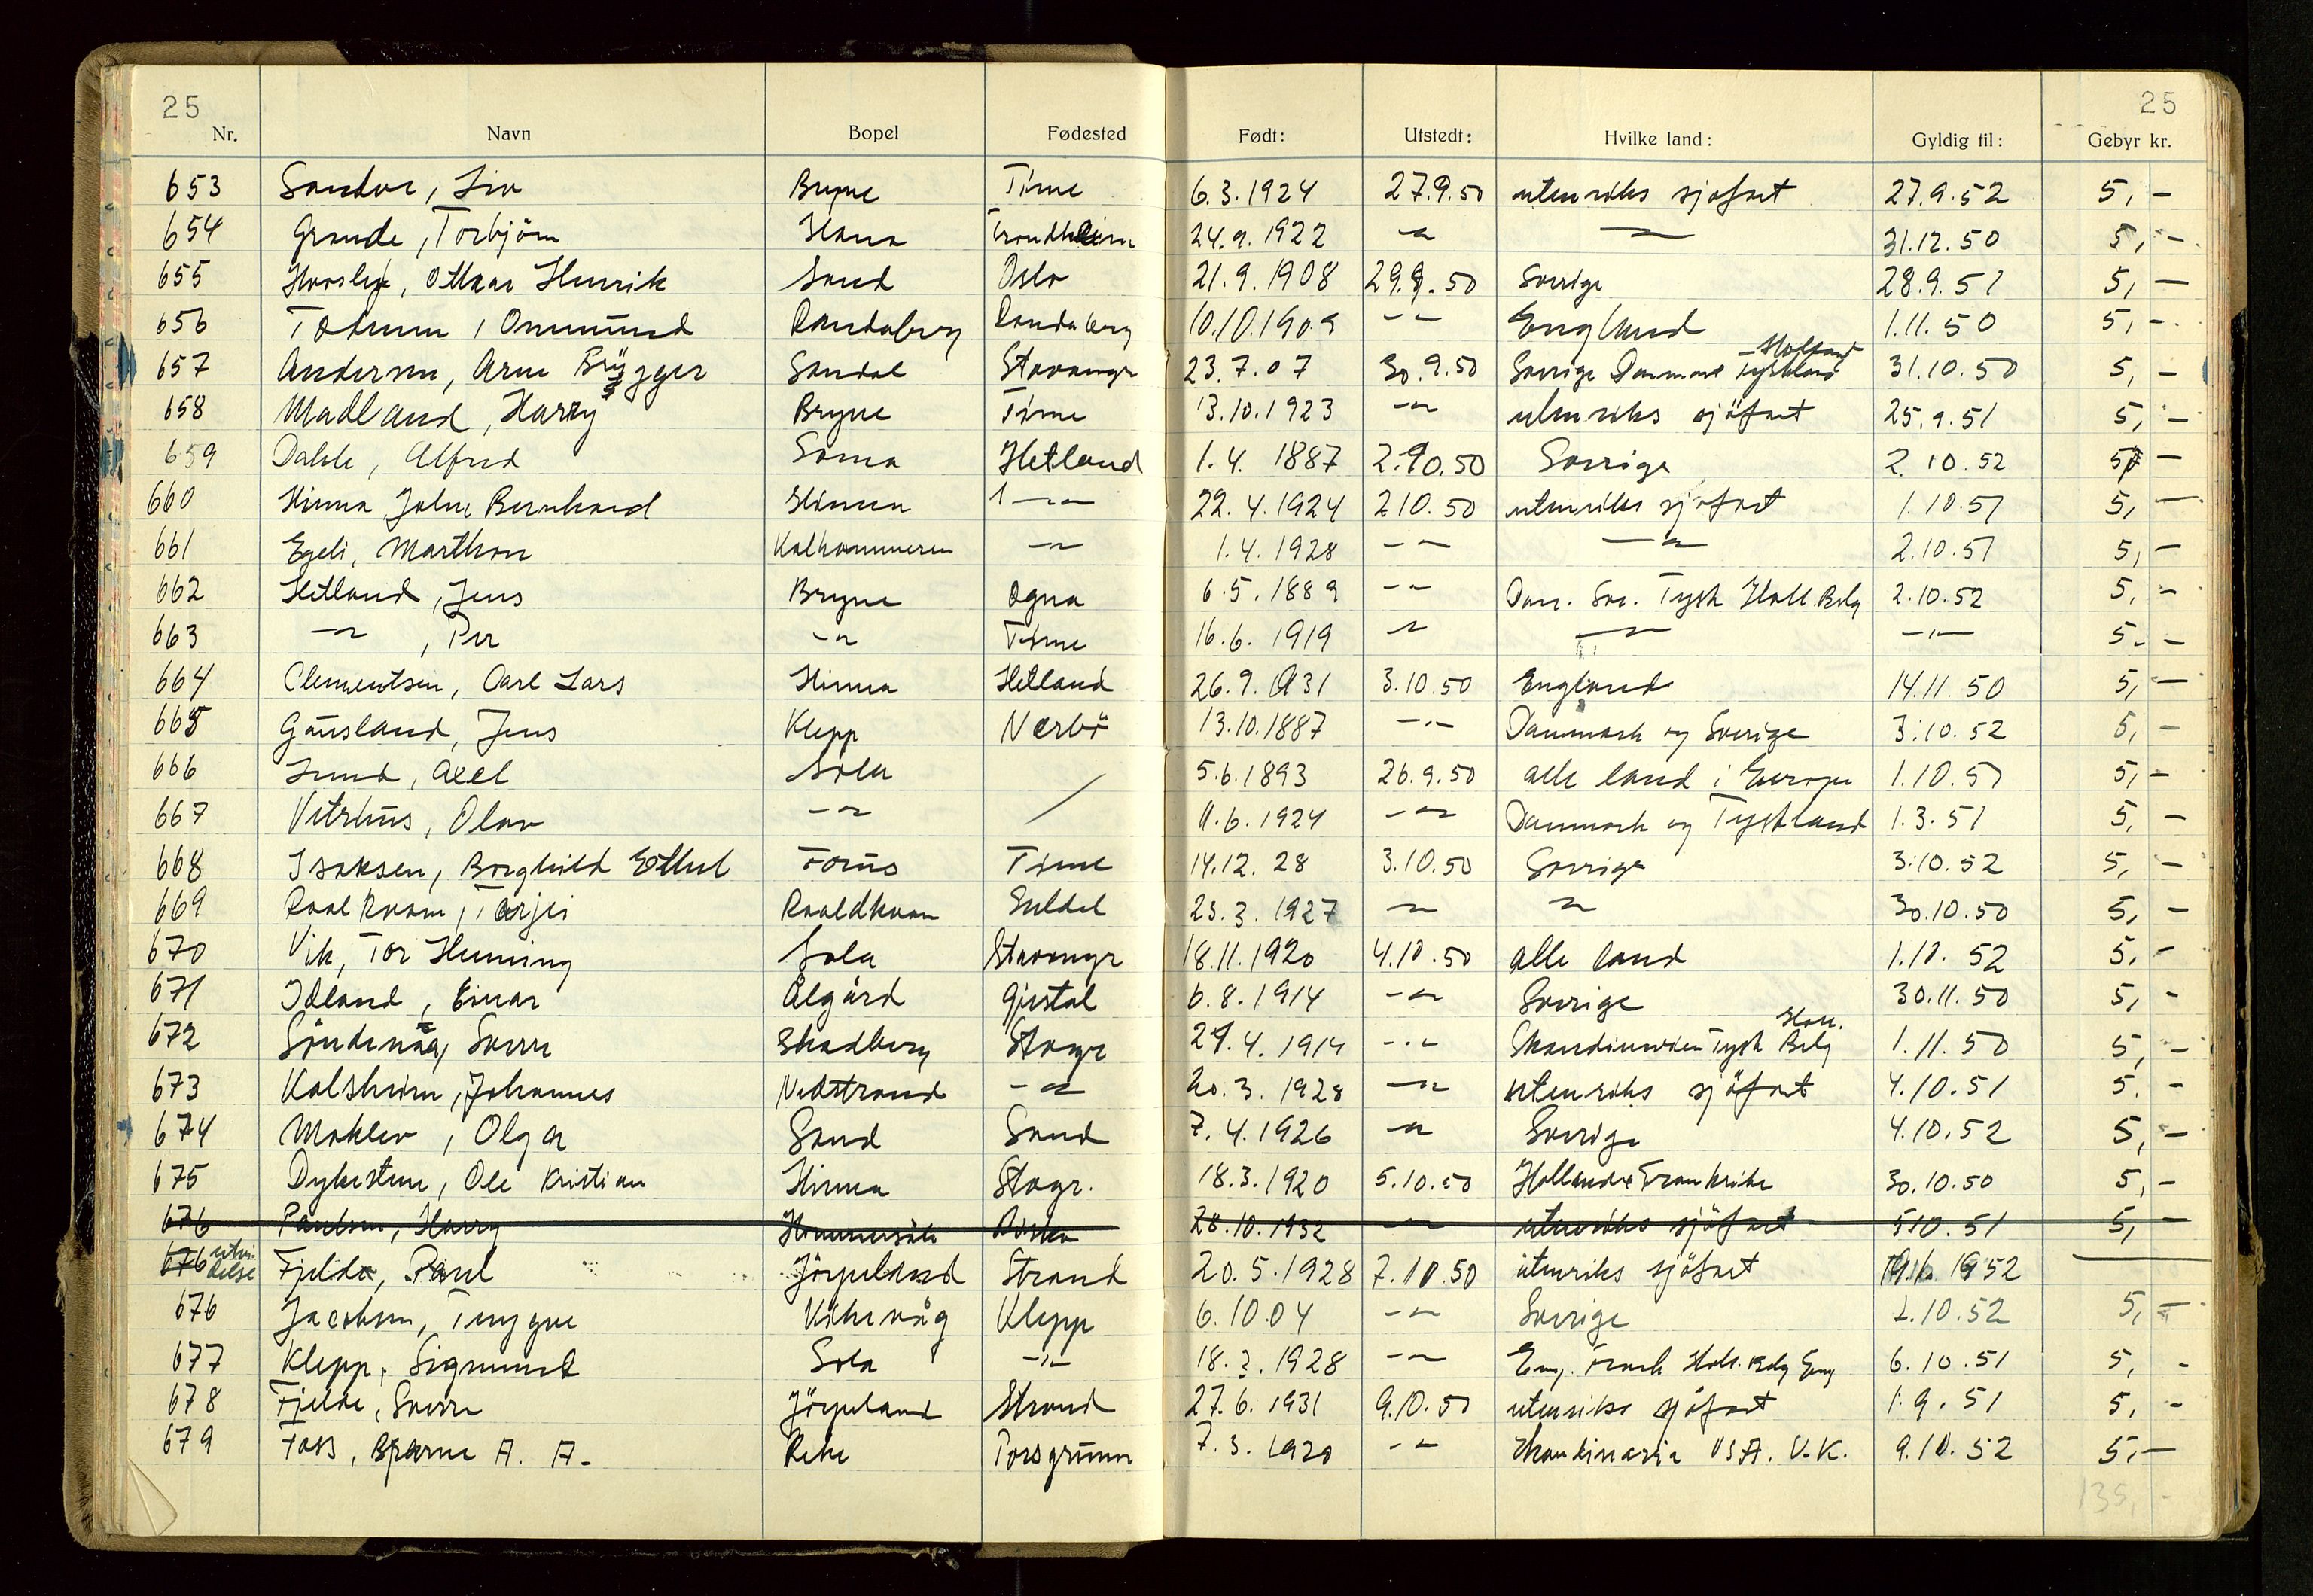 25 25
Nr. Navn Bopel Fødested Født: Utstedt: Hvilke land: Gyldig til: Gebyr kr.
653 Sandve, Liv Bryne Time 6.3.1924 27.9.50 utenriks sjøfart 27.9.52 5,-
654 Grande, Torbjörn Hana Trondheim 24.9.1922 -"- -"- 31.12.50 5,-
655 Ottar Henrik Sand Oslo 21.9.1908 29.9.50 Sverige 28.9.51 5,-
656 Ommund Randaberg Randaberg 10.10.1909 -"- England 1.11.50 5,-
657 Andersen, Arne Brügger Sandal Stavanger 23.7.07 30.9.50 Sverige Danmark Tyskland - Holland 31.10.50 5,-
658 Madland, Harry Bryne Time 13.10.1923 -"- utenriks sjöfart 25.9.51 5,-
659 Dahle, Alfred Soma Hetland 1.4.1887 2.10.50 Sverige 2.10.52 5,-
660 Hinna, John Bernhard Hinna -"- 22.4.1924 2.10.50 utenriks sjøfart 1.10.51 5,-
661 Egeli, Marthon Kolhammeren -"- 1.4.1928 -"- -"- 2.10.51 5,-
662 Hetland, Jens Bryne Ogna 6.5.1889 -"- Dan. Sve. Tysk Holl. Belg 2.10.52 5,-
663 -"-, Per -"- Time 16.6.1919 -"- -"- -"- 5.-
664 Clementsen, Carl Lars Hinna Hetland 26.9.1931 3.10.50 England 14.11.50 5,-
665 Gausland, Jens Klepp Nerbö 13.10.1887 -"- Danmark og Sverige 3.10.52 5,-
666 Lund, Axel Sola / 5.6.1893 26.9.50 alle land i Europa 1.10.51 5,-
667 Vetrhus, Olav -"- 11.6.1924 -"- Danmark og Tyskland 1.3.51 5,-
668 Isaksen, Borghild Ethel Forus Time 14.12.28 3.10.50 Sverige 3.10.52 5,-
669 Roalkvam, Terjei Roaldkvam Suldal 23.3.1927 -"- -"- 30.10.50 5,-
670 Vik, Tor Henning Sola Stavanger 18.11.1920 4.10.50 alle land 1.10.52 5,-
671 Idland, Einar Ålgård Gjestal 6.8.1914 -"- Sverige 30.11.50 5,-
672 Söndenaa, Sverre Skadberg Stvgr 27.4.1914 -"- Skandinavien Tysk Holl. Belg 1.11.50 5,-
673 Kalsheim, Johannes Nedstrand -"- 20.3.1928 -"- utenriks sjöfart 4.10.51 5.-
674 Moklev, Olga Sand Sand 7.4.1926 -"- Sverige 4.10.52 5,-
675 Dykesteen, Ole Kristian Hinna Stvgr. 18.3.1920 5.10.50 Holland Frankrike 30.10.50 5,-
676 Paulsen, Harry Hommersåk Riska 28.10.1932 -"- utenriks sjöfart 5.10.51 5,-
676 utvidelse Fjelde, Paul Jörpeland Strand 20.5.1928 7.10.50 utenriks sjöfart 1952
676 Jacobsen, Trygve Vikevåg Klepp 6.10.04 -"- Sverige 2.10.52 5,-
677 Klepp, Sigmund Sola -"- 18.3.1928 -"- Eng. Frank Holl. Belg Eng 6.10.51 5,-
678 Fjelde, Sverre Jörpeland Strand 27.6.1931 9.10.50 utenriks sjöfart 1.9.51 5,-
679 Foss, Bjarne A. A. Rehe Porsgrunn 7.3.1920 -"- Skandinavia USA. U.K. 9.10.52 5,-
135,-